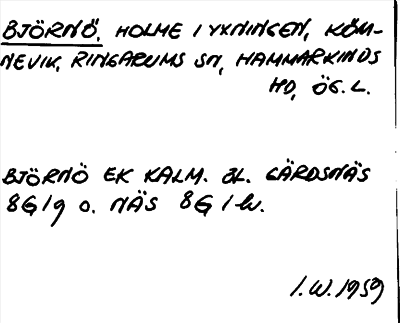 BJÖRNÖ, HOLME I YXNINGEN, KÖM-
NEVIK, RINGARUMS SN, HAMMARKINDS
HD, ÖG. L.
BJÖRNÖ EK KALM. BL. GÄRDSNÄS
8G 1g o. NÄS 8G 1h.
I.W. 1959